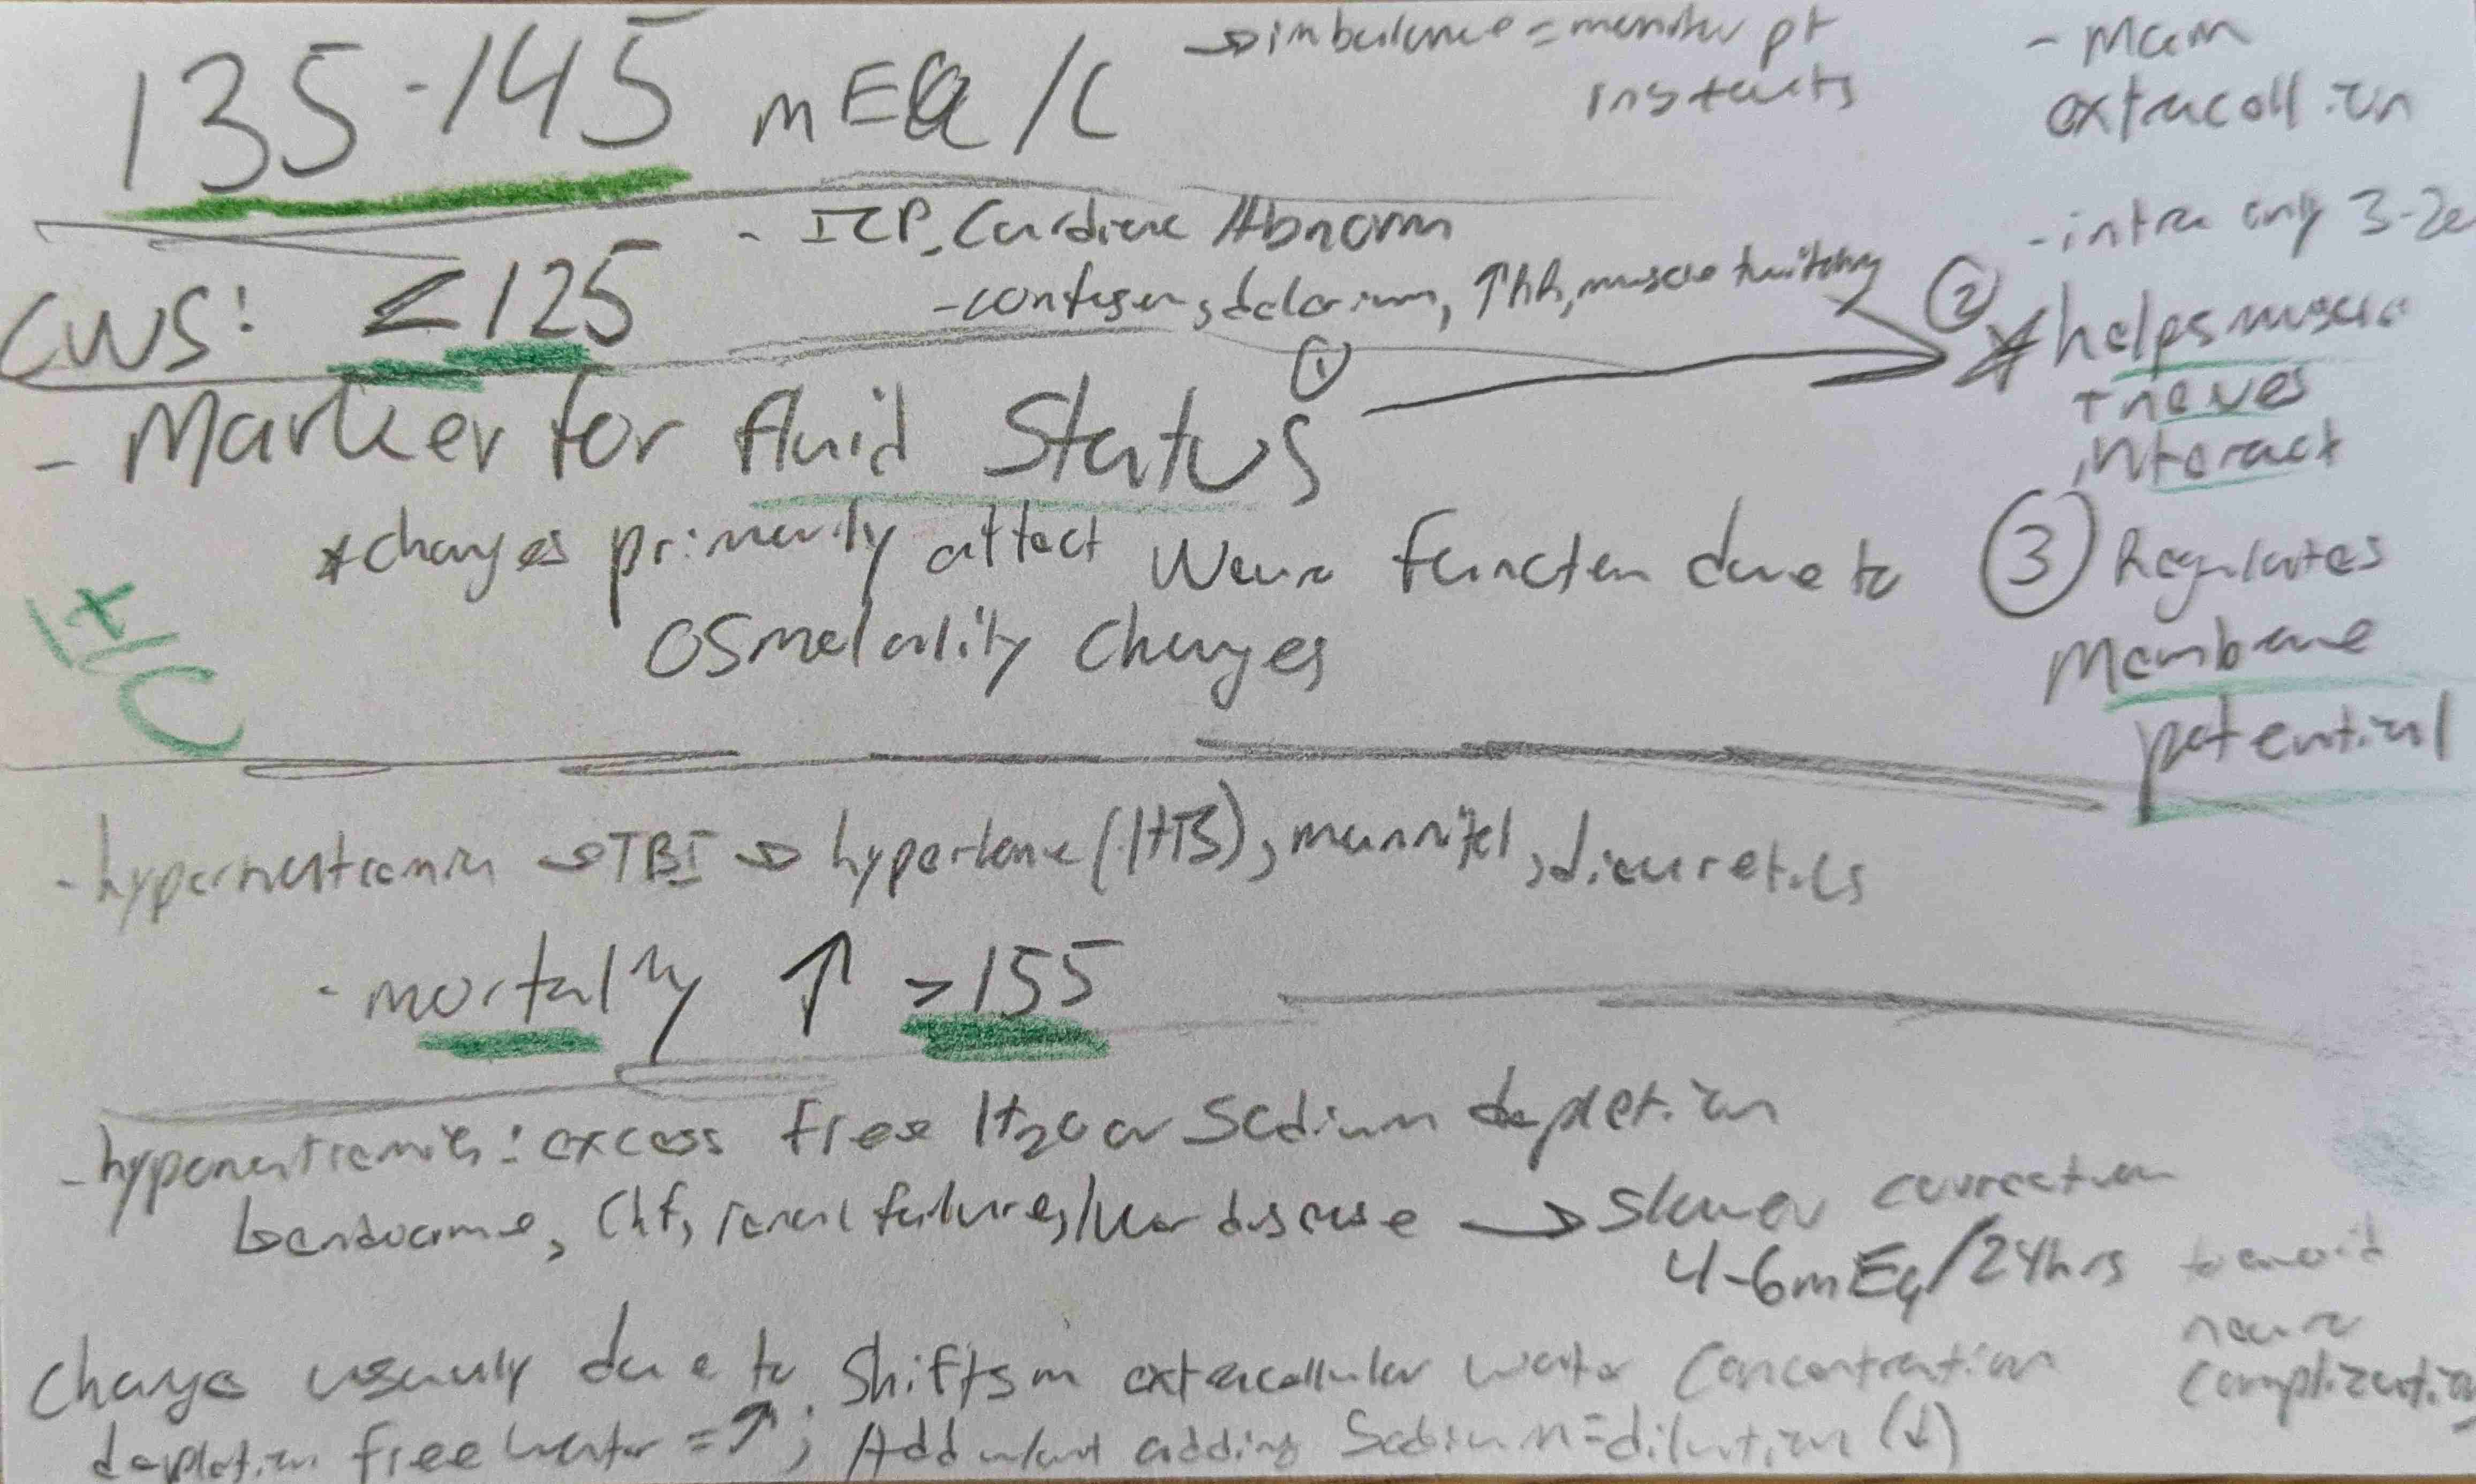 135-145 mEQ/L
→ imbalance = monitor pt
- Main
extracell ion
- ICP, Cardiac Abnorm
- intra only 3-
CWS: ≤125
- confusion, delerium, ↑RR, muscle twitching
② * helps muscle
+ nerves
interact
- Marker for fluid Status ①
* changes primarily affect Neuro function due to
Osmolality changes
③ Regulates
Membrane
potential
+/C
- hypernatremia → TBI → hypertonic (HTS), mannitol, diuretics
- mortality ↑ >155
- hyponatremia: excess free H2O or Sodium depletion
↳ endocrine, Chf, renal failure, liver disease → slower correction
4-6mEq/24hrs to avoid
neuro
complication
Change usually due to shifts in extracellular water concentration
depletion free water = ↑; Add w/out adding Sodium = dilution (↓)